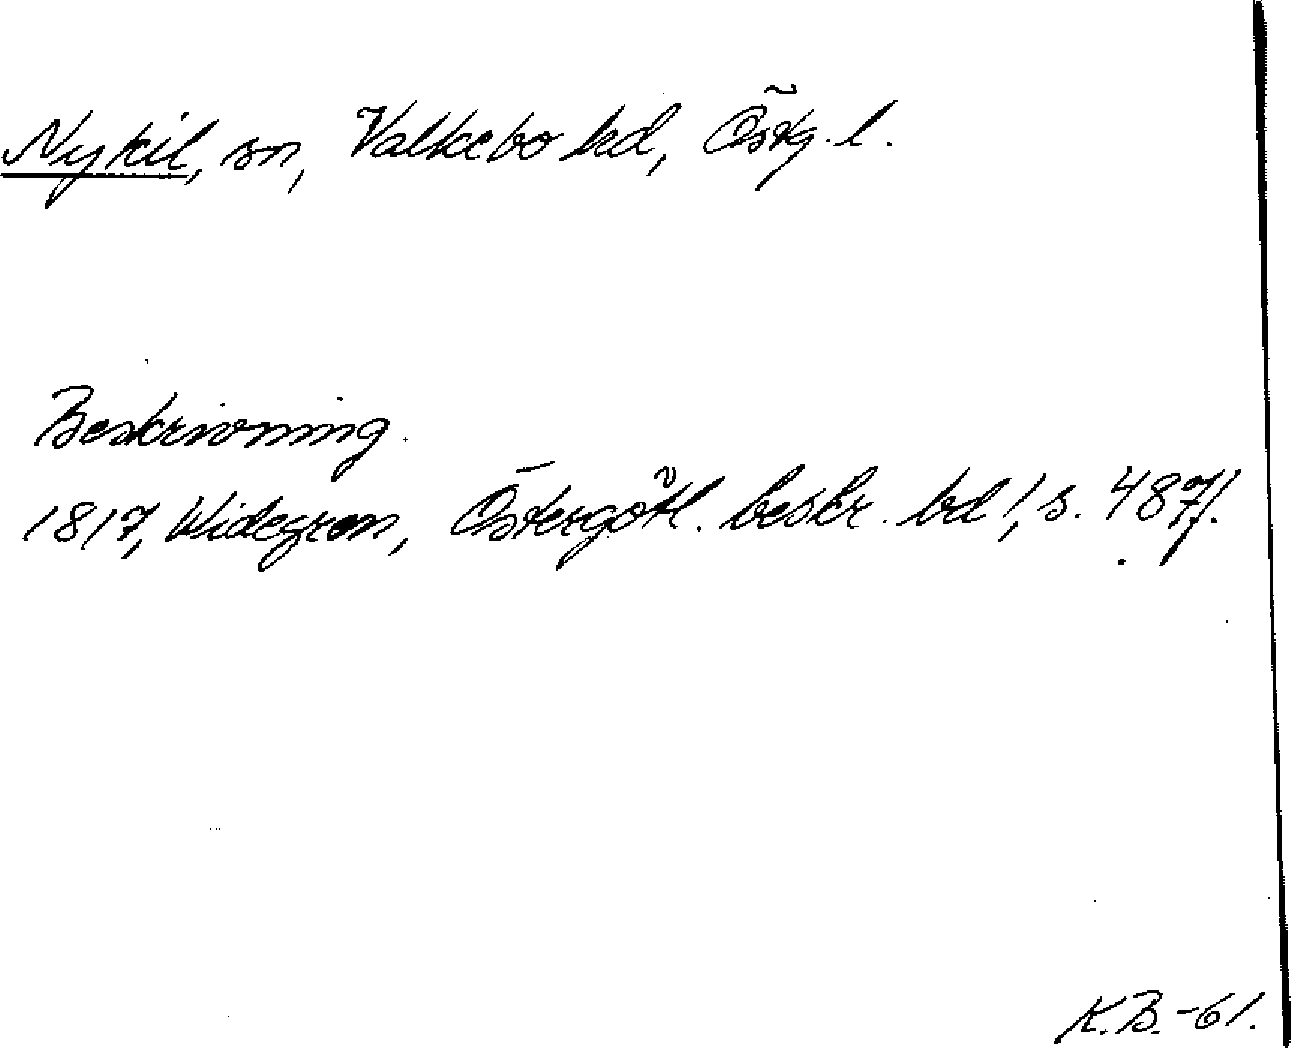 Nykil, sn, Valkebo hd, Östg. l.
Beskrivning.
1817, Widegren, Östergötl. beskr. bd 1, s. 487.
K.B.-61.